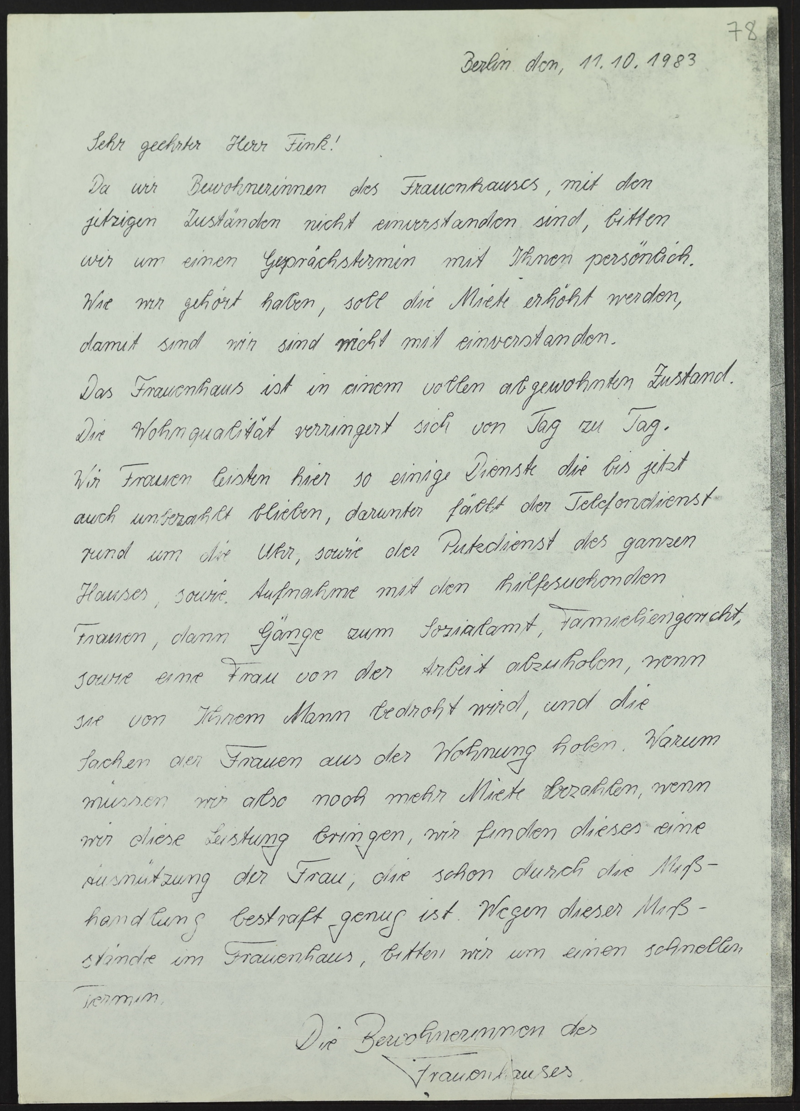 78
Berlin den, 11.10.1983
Sehr geehrter Herr Fink!
Da wir Bewohnerinnen des Frauenhauses, mit den
jetzigen Zuständen nicht einverstanden sind, bitten
wir um einen Gesprächstermin mit Ihnen persönlich.
Wie wir gehört haben, soll die Miete erhöht werden,
damit sind wir sind nicht mit einverstanden.
Das Frauenhaus ist in einem vollen abgewohnten Zustand.
Die Wohnqualität verringert sich von Tag zu Tag.
Wir Frauen leisten hier so einige Dienste die bis jetzt
auch unbezahlt blieben, darunter fällt der Telefondienst
rund um die Uhr, sowie der Putzdienst des ganzen
Hauses, sowie Aufnahme mit den hilfesuchenden
Frauen, dann Gänge zum Sozialamt, Familiengericht,
sowie eine Frau von der Arbeit abzuholen, wenn
sie von Ihrem Mann bedroht wird, und die
Sachen der Frauen aus der Wohnung holen. Warum
müssen wir also noch mehr Miete bezahlen, wenn
wir diese Leistung bringen, wir finden dieses eine
Ausnützung der Frau, die schon durch die Miß-
handlung bestraft genug ist. Wegen dieser Miß-
stände im Frauenhaus, bitten wir um einen schnellen
Termin.
Die Bewohnerinnen des
Frauenhauses